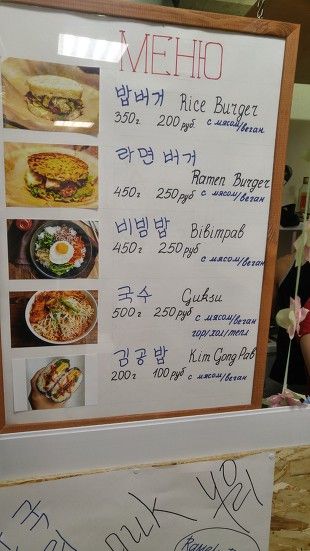 МЕНЮ
밥버거 Rice Burger
350г 200 руб с мясом/веган
라면 버거
Ramen Burger
450г 250 руб с мясом/веган
비빔밥 Bibimpab
450г 250 руб
с мясом/веган
국수 Guksu
500г 250 руб с мясом/веган
гор/хол/тепл
김공밥 Kim Gong Pab
200г 100 руб с мясом/веган